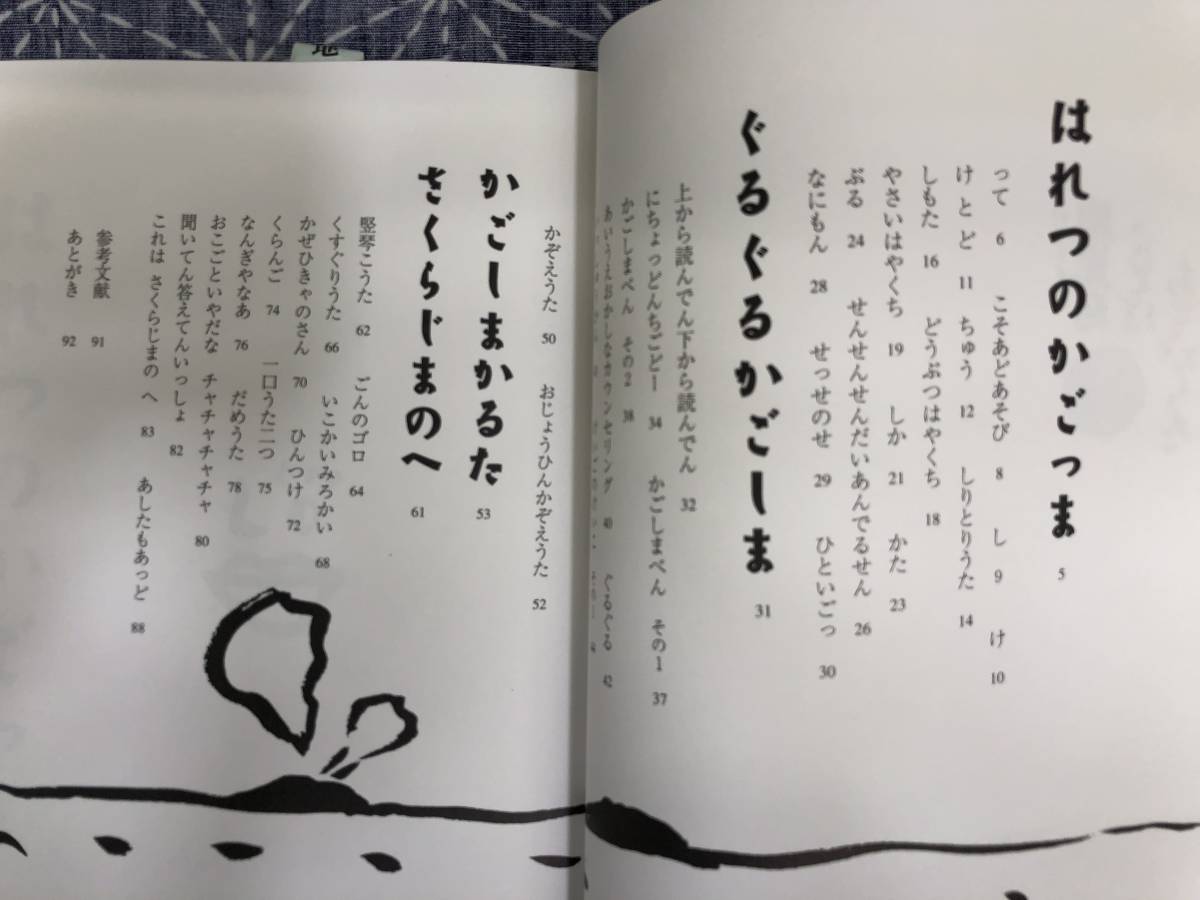 はれつのかごっま 5
って 6 こそあどあそび 8 し 9 け 10
けとど 11 ちゅう 12 しりとりうた 14
しもた 16 どうぶつはやくち 18
やさいはやくち 19 しか 21 かた 23
ぶる 24 せんせんせんだいあんでるせん 26
なにもん 28 せっせのせ 29 ひといごっ 30
ぐるぐるかごしま 31
上から読んでん下から読んでん 32
にちょっどんちごどー 34 かごしまべん その1 37
かごしまべん その2 38
あいうえおかしなカウンセリング 40 ぐるぐる 42
かぞえうた 50 おじょうひんかぞえうた 52
かごしまかるた 53
さくらじまのへ 61
竪琴こうた 62 ごんのゴロ 64
くすぐりうた 66 いこかいみろかい 68
かぜひきゃのさん 70 ひんつけ 72
くらんご 74 一口うた二つ 75
なんぎやなあ 76 だめうた 78
おこごといやだな チャチャチャチャチャ 80
聞いてん答えてんいっしょ 82
これは さくらじまの へ 83 あしたもあっど 88
参考文献 91
あとがき 92